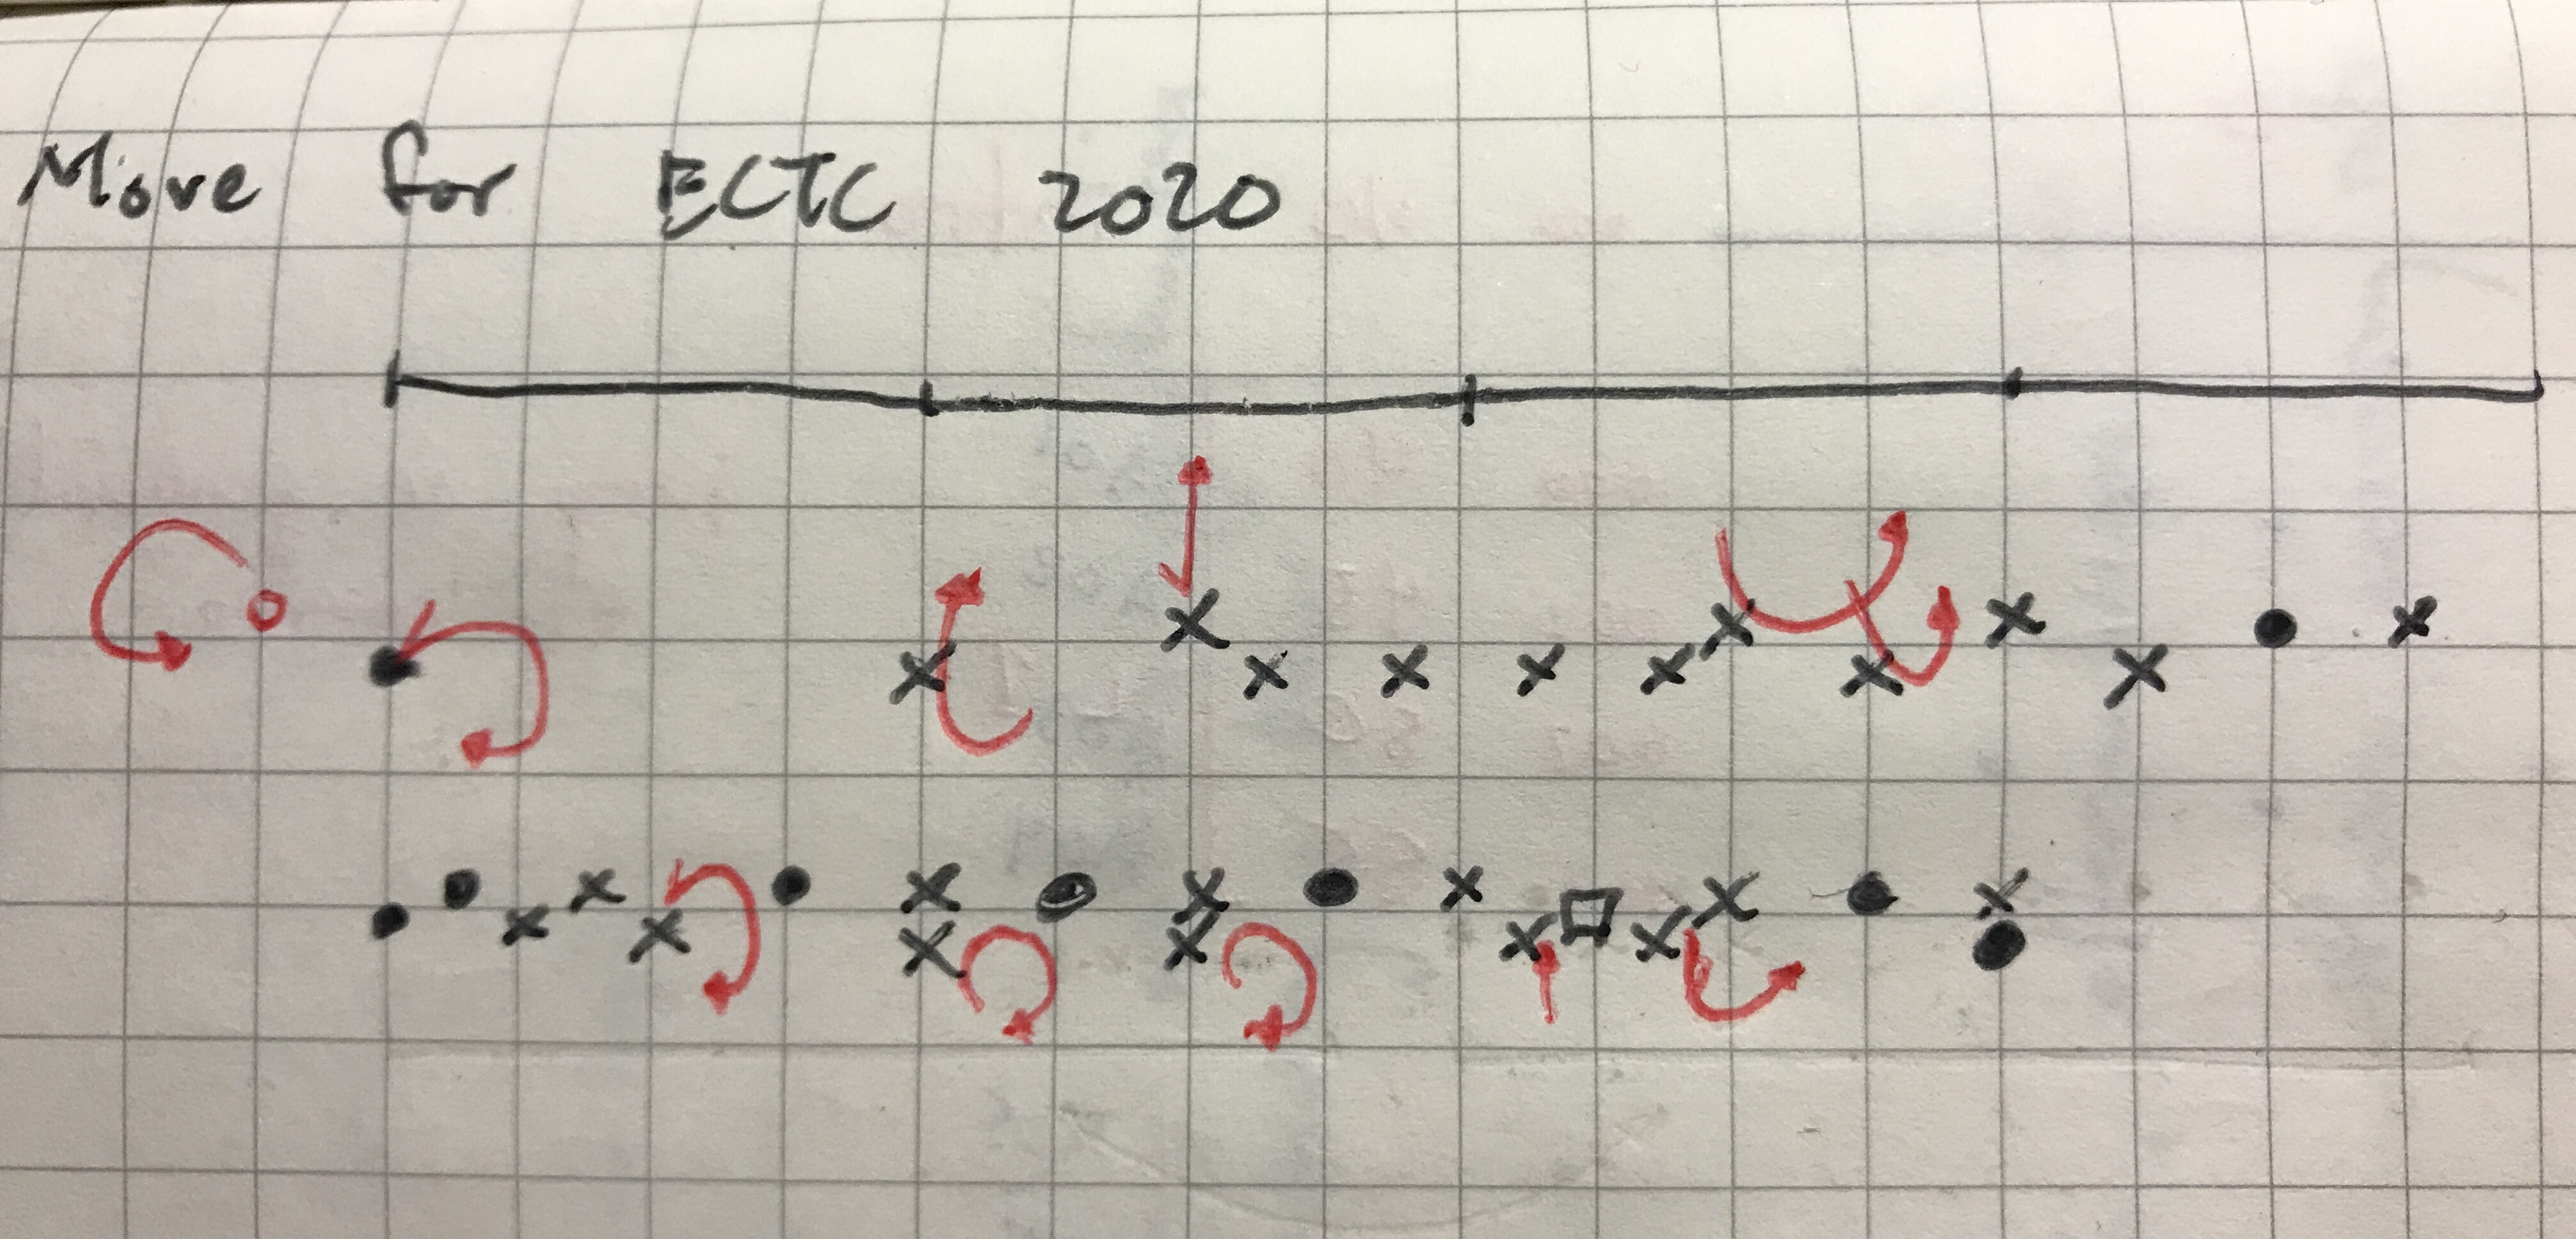 Move for ECTC 2020